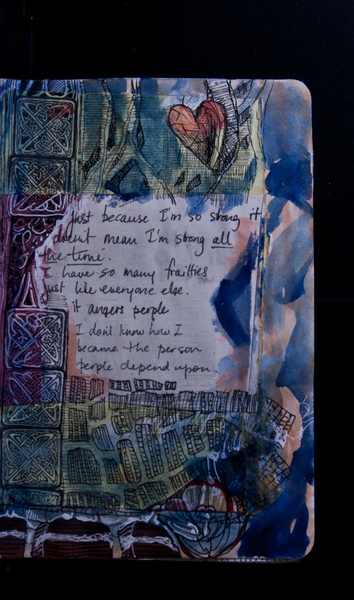 Just because I'm so strong it
doesn't mean I'm strong all
the time.
I have so many frailties
just like everyone else.
it angers people
I don't know how I
became the person
people depend upon.